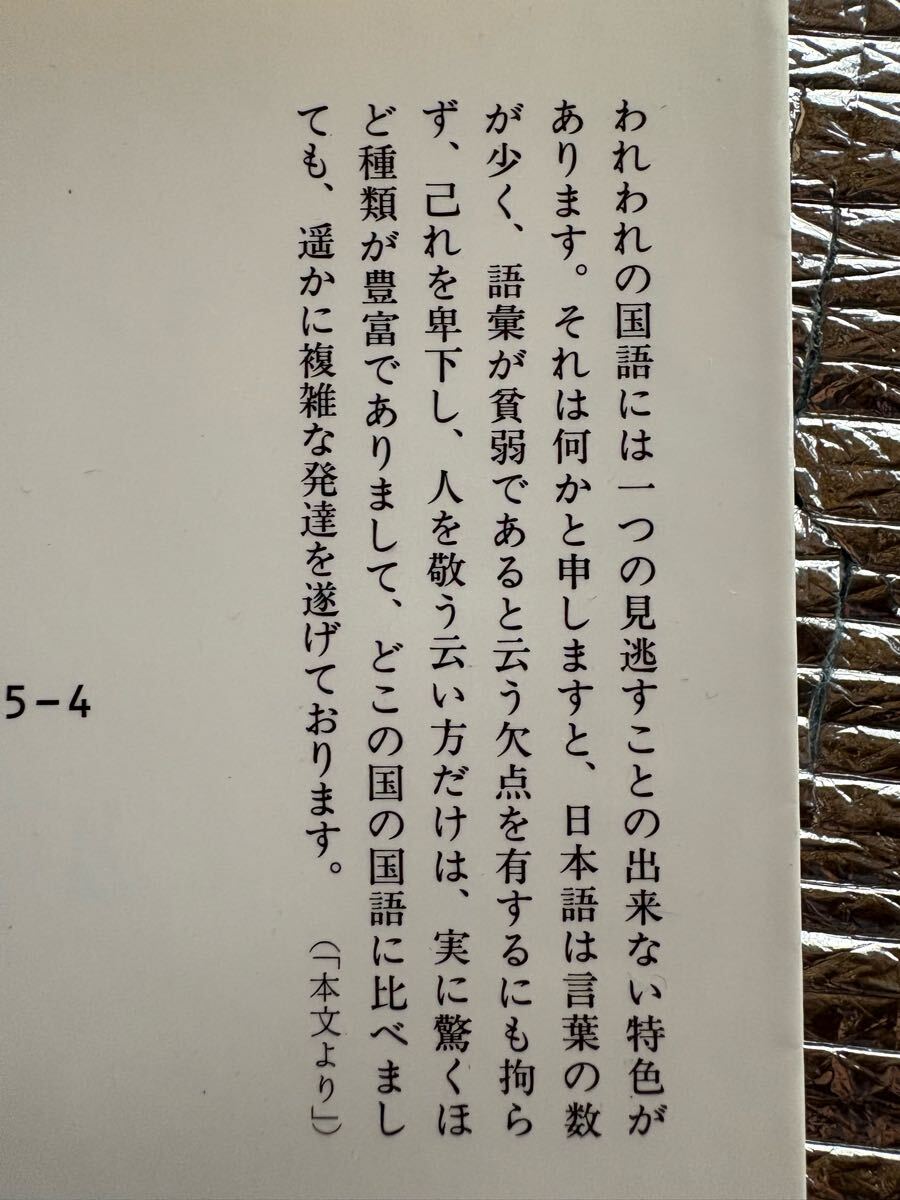 われわれの国語には一つの見逃すことの出来ない特色が
あります。それは何かと申しますと、日本語は言葉の数
が少く、語彙が貧弱であると云う欠点を有するにも拘ら
ず、己れを卑下し、人を敬う云い方だけは、実に驚くほ
ど種類が豊富でありまして、どこの国の国語に比べまし
ても、遥かに複雑な発達を遂げております。
（「本文より」）
5-4